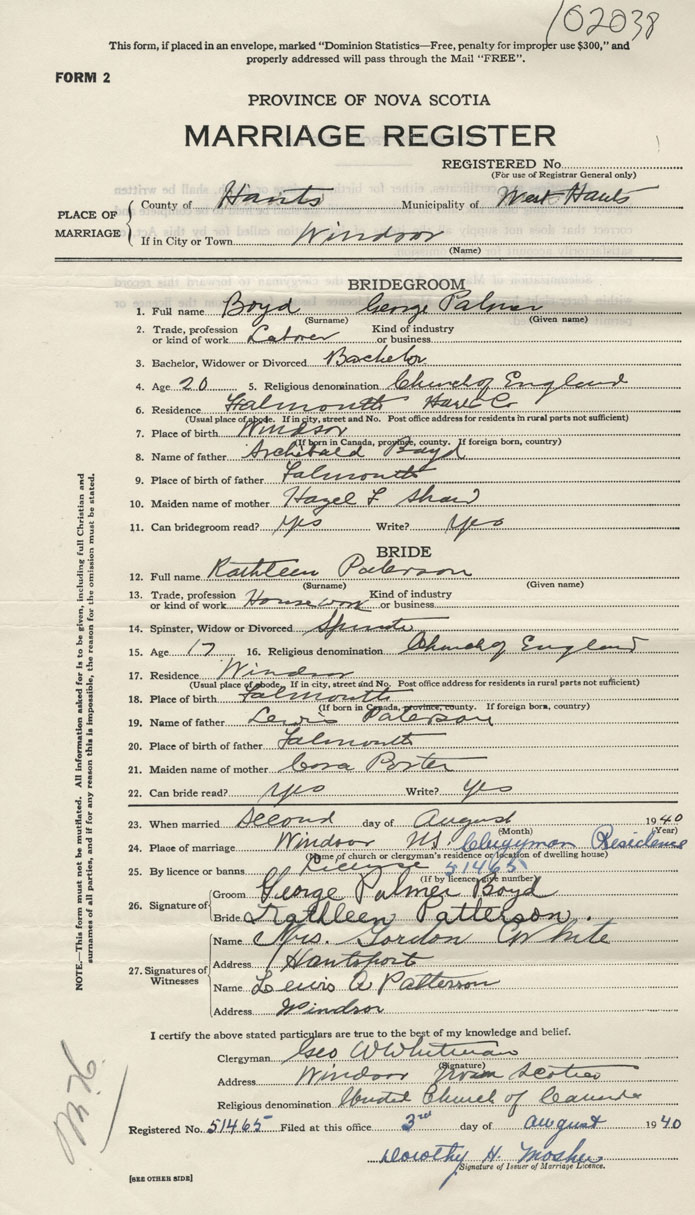 102038
This form, if placed in an envelope, marked "Dominion Statistics—Free, penalty for improper use $300," and
properly addressed will pass through the Mail "FREE".
FORM 2
PROVINCE OF NOVA SCOTIA
MARRIAGE REGISTER
REGISTERED No.
(For use of Registrar General only)
PLACE OF MARRIAGE
County of Hants Municipality of West Hants
If in City or Town Windsor
(Name)
BRIDEGROOM
1. Full name Boyd George Palmer
(Surname) (Given name)
2. Trade, profession or kind of work Laborer Kind of industry or business
3. Bachelor, Widower or Divorced Bachelor
4. Age 20 5. Religious denomination Church of England
6. Residence Falmouth Hants Co
(Usual place of abode. If in city, street and No. Post office address for residents in rural parts not sufficient)
7. Place of birth Windsor
(If born in Canada, province, county. If foreign born, country)
8. Name of father Archibald Boyd
9. Place of birth of father Falmouth
10. Maiden name of mother Hazel F Shaw
11. Can bridegroom read? Yes Write? Yes
BRIDE
12. Full name Kathleen Paterson
(Surname) (Given name)
13. Trade, profession or kind of work Kind of industry or business
14. Spinster, Widow or Divorced Spinster
15. Age 17 16. Religious denomination Church of England
17. Residence Windsor
(Usual place of abode. If in city, street and No. Post office address for residents in rural parts not sufficient)
18. Place of birth Falmouth
(If born in Canada, province, county. If foreign born, country)
19. Name of father Lewis Paterson
20. Place of birth of father Falmouth
21. Maiden name of mother Cora Porter
22. Can bride read? Yes Write? Yes
23. When married Second day of August 1940
(Month) (Year)
24. Place of marriage Windsor NS. Clergyman Residence
(Name of church or clergyman's residence or location of dwelling house)
25. By licence or banns License 51465
(If by licence, give number)
26. Signature of
Groom George Palmer Boyd
Bride Kathleen Patterson.
27. Signatures of Witnesses
Name Mrs. Gordon White
Address Hantsport
Name Lewis A Patterson
Address Windsor
I certify the above stated particulars are true to the best of my knowledge and belief.
Clergyman Geo W Whitman
(Signature)
Address Windsor Nova Scotia
Religious denomination United Church of Canada
Registered No. 51465 Filed at this office 3rd day of August 1940
Dorothy H. Mosher
Signature of Issuer of Marriage Licence.
[SEE OTHER SIDE]
NOTE.—This form must not be mutilated. All information asked for is to be given, including full Christian and
surnames of all parties, and if for any reason this is impossible, the reason for the omission must be stated.